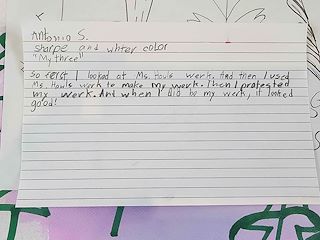 Antonio S.
sharpe and whter color
"My three"
So ferst I looked at Ms. Howls work. And then I used
Ms. Howls work to make my work. Then I protested
my work. And when I did bo my work, it looked
good!